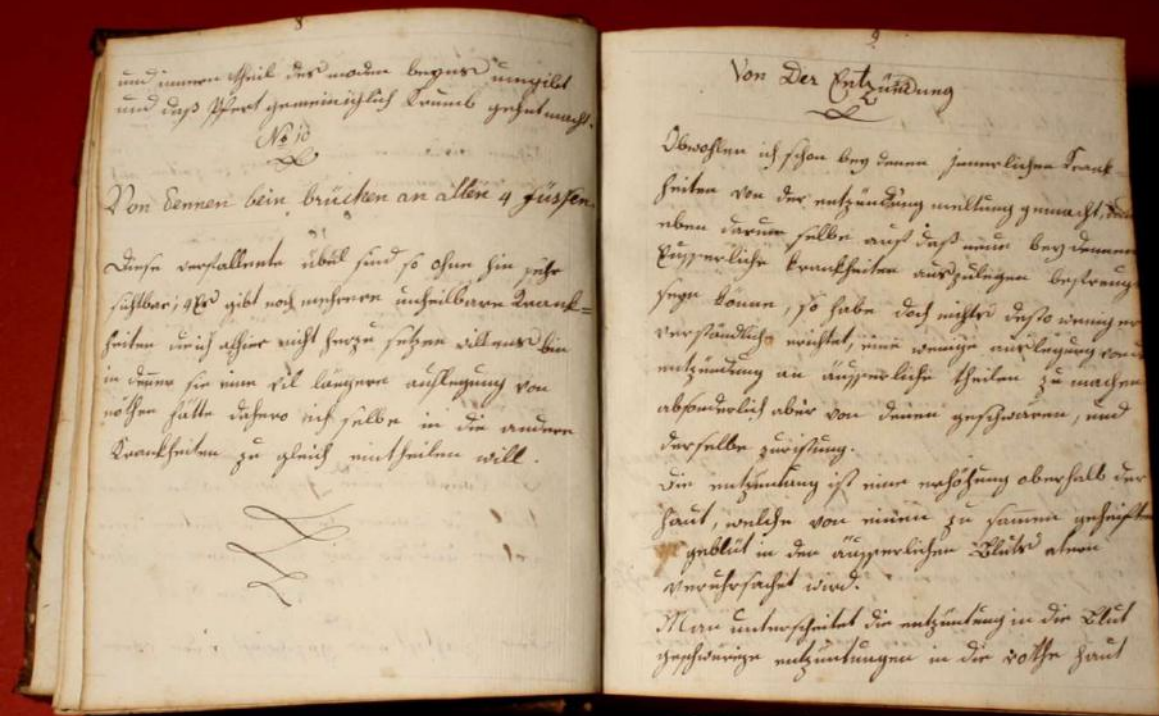 8
und innern theil des modern beyns umgibt
und daß Pfert gemeiniglich Krumb gehnt macht.
No 10
Von dennen bein brüchen an allen 4 füssen.
Diese verfallente übül sind so ohne hin sehr
sichtbar; Es gibt noch mehrere unheilbare Krank=
heiten weich alhier nicht herzu setzen willens bin
in deme sie eine vil längere auslegung von
nöthen hätte dahero ich selbe in die andern
Krankheiten zu gleich eintheilen will.
9
Von Der Entzündung
Obwohlen ich schon bey denen innerlichen Krank
heiten von der entzündung meltung gemacht,
eben darum selbe auf daß neue bey denenen
Eusserliche Krankheiten auszulegen
seyn könne, so habe doch nichts desto weniger
verständlich errichtet, eine wenige auslegung von
entzündung an äusserliche theilen zu machen
absonderlich aber von denen geschwären, und
derselbe
Die entzüntung ist eine erhöhung oberhalb der
haut, welche von einen zu samen geheiften
geblüt in den äusserlichen Bluts atern
veruhrsachet wird.
Man unterscheitet die entzüntung in die Blut
geschwürige entzüntungen in die rothe haut